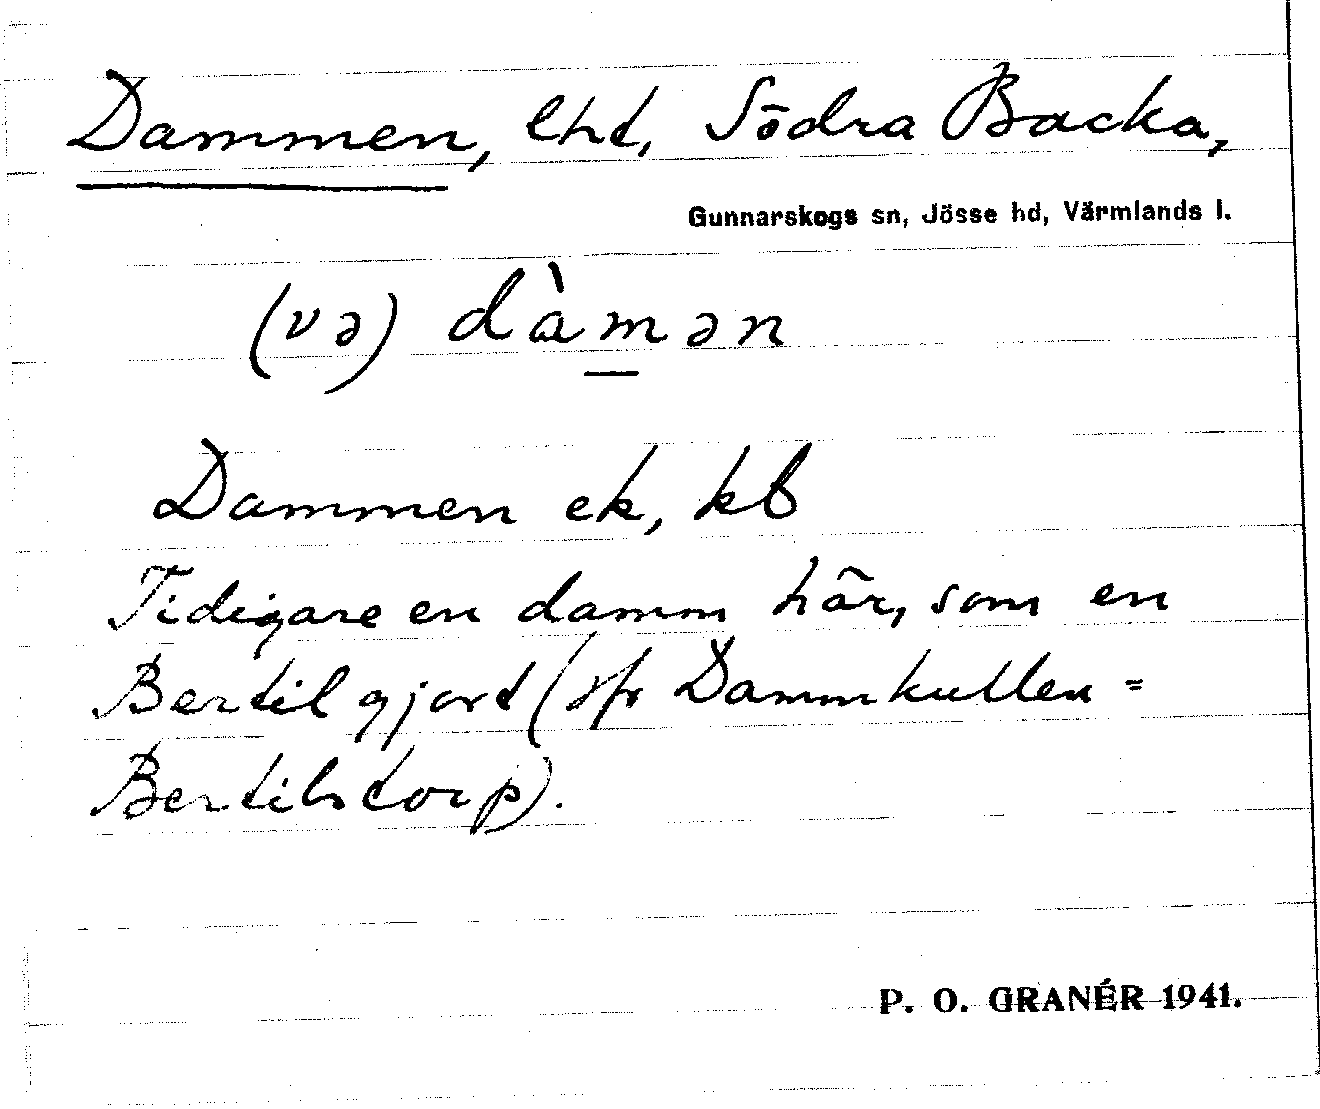 Dammen, lht, Södra Backa,
Gunnarskogs sn, Jösse hd, Värmlands l.
(və) dàm̲ən
Dammen ek, kb
Tidigare en damm här, som en
Bertil gjort (jfr Dammkullen =
Bertilstorp).
P. O. GRANÉR 1941.